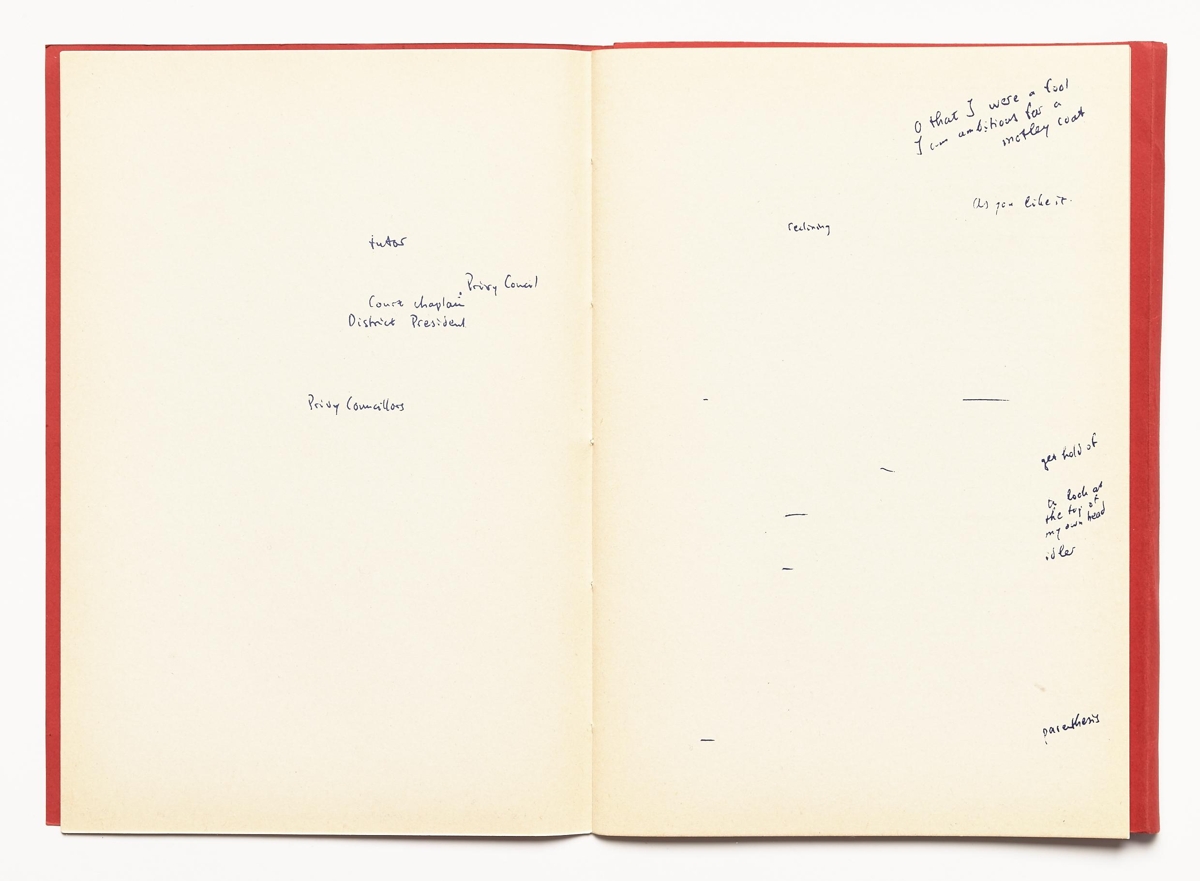 tutor
Privy Council
Court chaplain
District President
Privy Councillors
O that I were a fool
I am ambitious for a
motley coat
As you like it.
reclining
get hold of
a look at
the top of
my own head
idler
parenthesis